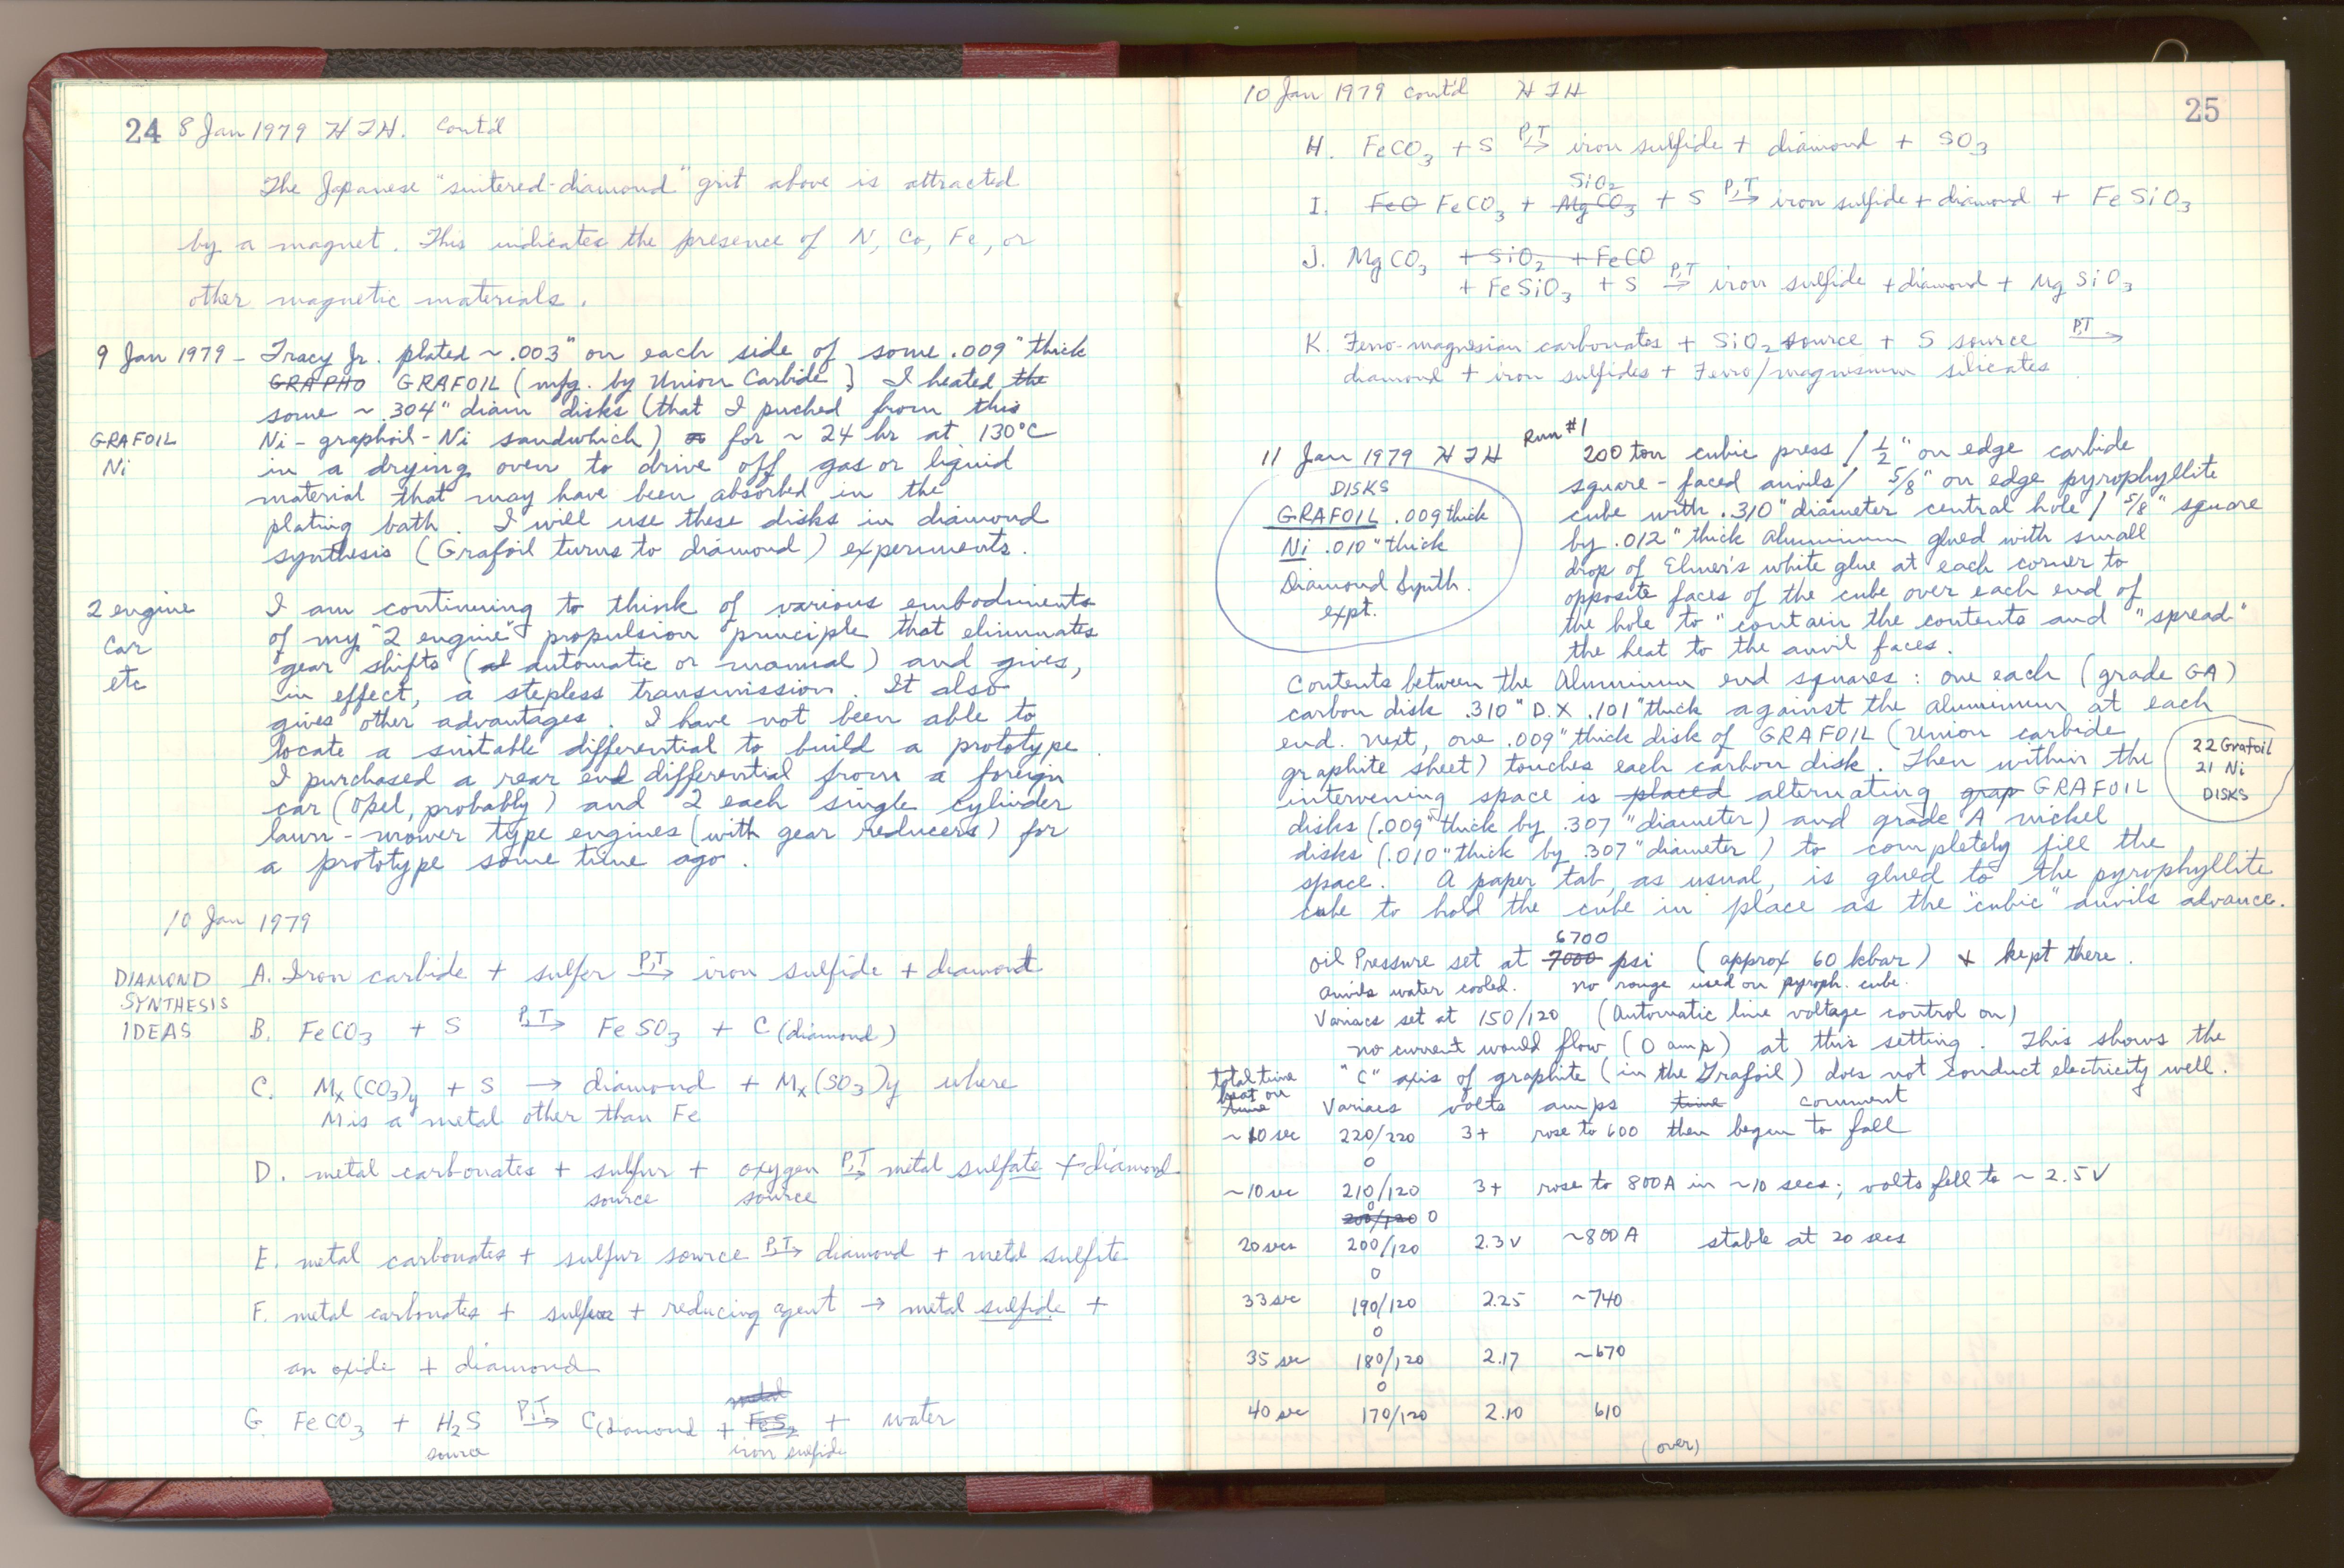 24 8 Jan 1979 HTH. Cont'd
The Japanese "sintered-diamond" grit above is attracted
by a magnet. This indicates the presence of N, Co, Fe, or
other magnetic materials.
9 Jan 1979 - Tracy Jr. plated ~ .003" on each side of some .009" thick
GRAPHO GRAFOIL (mfg. by Union Carbide) I heated the
some ~ .304" diam disks (that I puched from this
GRAFOIL Ni - graphoil - Ni sandwhich) for ~ 24 hr at 130°C
Ni in a drying oven to drive off gas or liquid
material that may have been absorbed in the
plating bath. I will use these disks in diamond
synthesis (Grafoil turns to diamond) experiments.
2 engine I am continuing to think of various embodiments
car of my "2 engine" propulsion principle that eliminates
etc gear shifts (automatic or manual) and gives,
in effect, a stepless transmission. It also
gives other advantages. I have not been able to
locate a suitable differential to build a prototype.
I purchased a rear end differential from a foreign
car (Opel, probably) and 2 each single cylinder
lawn-mower type engines (with gear reducers) for
a prototype some time ago.
10 Jan 1979
DIAMOND SYNTHESIS IDEAS
A. Iron carbide + sulfer P,T → iron sulfide + diamond
B. FeCO3 + S P,T → FeSO3 + C (diamond)
C. Mx(CO3)y + S → diamond + Mx(SO3)y where
M is a metal other than Fe
D. metal carbonates + sulfur + oxygen P,T → metal sulfate + diamond
source source
E. metal carbonates + sulfur source P,T → diamond + metal sulfite
F. metal carbonates + sulfur + reducing agent → metal sulfide +
an oxide + diamond
metal
G. FeCO3 + H2S P,T → C(diamond + FeS2 + water
source iron sulfide
10 Jan 1979 cont'd HTH
25
H. FeCO3 + S P,T → iron sulfide + diamond + SO3
SiO2
I. FeO FeCO3 + MgCO3 + S P,T → iron sulfide + diamond + FeSiO3
J. MgCO3 + SiO2 + FeCO
+ FeSiO3 + S P,T → iron sulfide + diamond + MgSiO3
K. Ferro-magnesian carbonates + SiO2 source + S source P,T →
diamond + iron sulfides + Ferro/magnesium silicates
11 Jan 1979 HTH Run #1 200 ton cubic press / 1/2" on edge carbide
square-faced anvils / 5/8" on edge pyrophyllite
cube with .310" diameter central hole / 5/8" square
by .012" thick Aluminum glued with small
drop of Elmer's white glue at each corner to
opposite faces of the cube over each end of
the hole to "contain the contents and "spread"
the heat to the anvil faces.
DISKS
GRAFOIL .009 thick
Ni .010" thick
Diamond Synth.
expt.
Contents between the Aluminum end squares: one each (grade GA)
carbon disk .310" D. X .101" thick against the aluminum at each
end. Next, one .009" thick disk of GRAFOIL (Union carbide
graphite sheet) touches each carbon disk. Then within the
intervening space is placed alternating grap GRAFOIL
disks (.009" thick by .307" diameter) and grade A nickel
disks (.010" thick by .307" diameter) to completely fill the
space. A paper tab, as usual, is glued to the pyrophyllite
cube to hold the cube in place as the "cubic" anvils advance.
22 Grafoil
21 Ni
DISKS
6700
Oil Pressure set at 7000 psi (approx 60 kbar) & kept there.
Anvils water cooled. no rouge used on pyroph. cube.
Variacs set at 150/120 (Automatic line voltage control on)
no current would flow (0 amp) at this setting. This shows the
"C" axis of graphite (in the Grafoil) does not conduct electricity well.
total time
heat on
time Variacs volts amps time comment
~10 sec 220/220 3+ rose to 600 then began to fall
0
~10 sec 210/120 3+ rose to 800A in ~10 secs; volts fell to ~ 2.5V
0
200/120 0
20 secs 200/120 2.3v ~800A stable at 20 secs
0
33 sec 190/120 2.25 ~740
0
35 sec 180/120 2.17 ~670
0
40 sec 170/120 2.10 610
(over)